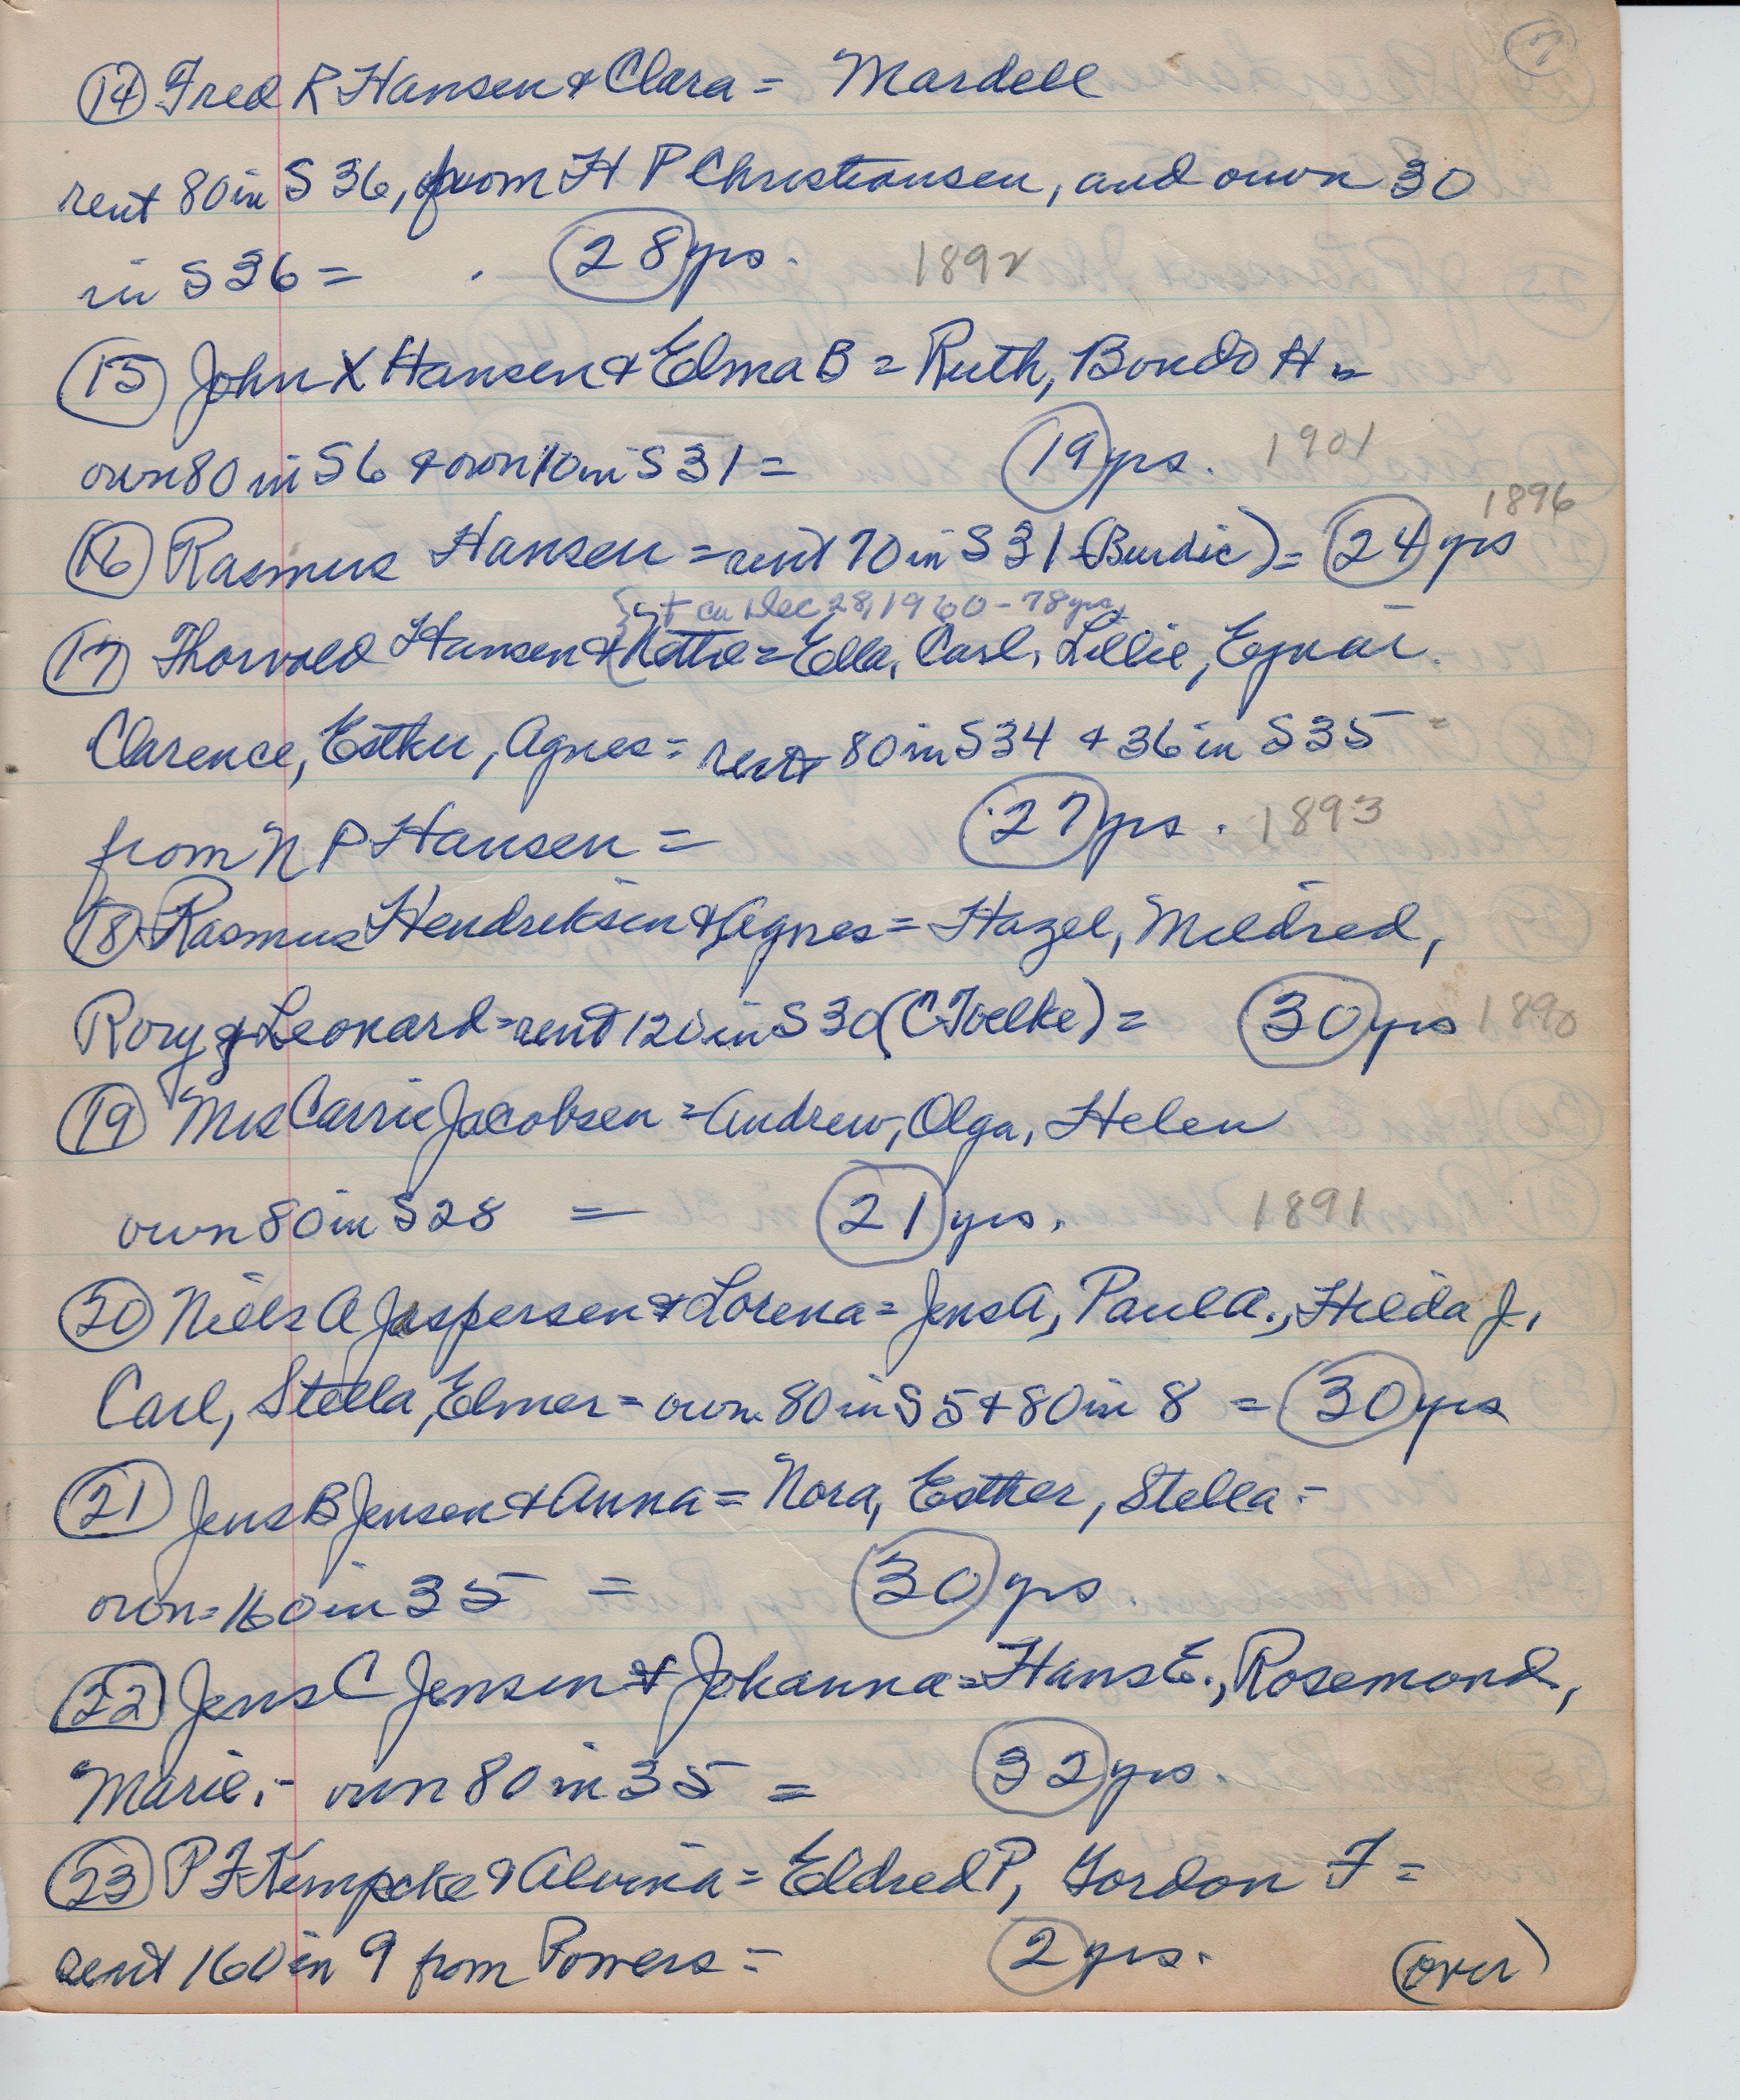 7
(14) Fred R Hansen & Clara = Mardell
rent 80 in S 36, from H P Christiansen, and own 30
in S 36 = . (28) yrs. 1892
(15) John X Hansen & Elma B = Ruth, Bondo H =
own 80 in S 6 & own 10 in S 31 = (19) yrs. 1901
1896
(16) Rasmus Hansen = rent 70 in S 31 (Burdic) = (24) yrs
+ ca Dec 28, 1960 - 78 yrs
(17) Thorvald Hansen & Nettie = Ella, Carl, Lillie, Ejnar.
Clarence, Esther, Agnes = rent 80 in S 34 & 36 in S 35 =
from N P Hansen = (27) yrs. 1893
(18) Rasmus Hendriksen & Agnes = Hazel, Mildred,
Rory & Leonard = rent 120 in S 30 (C Toelke) = (30) yrs 1890
(19) Mrs Carrie Jacobsen = Andrew, Olga, Helen
own 80 in S 28 = (21) yrs. 1891
(20) Niels A Jaspersen & Lorena = Jens A, Paul A., Hilda J,
Carl, Stella, Elmer = own 80 in S 5 & 80 in 8 = (30) yrs
(21) Jens B Jensen & Anna = Nora, Esther, Stella =
own = 160 in 35 = (30) yrs.
(22) Jens C Jensen & Johanna = Hans E., Rosemond,
Marie. - own 80 in 35 = (32) yrs.
(23) P F Kempcke & Alvina = Eldred P, Gordon F =
rent 160 in 9 from Powers = (2) yrs. (over)